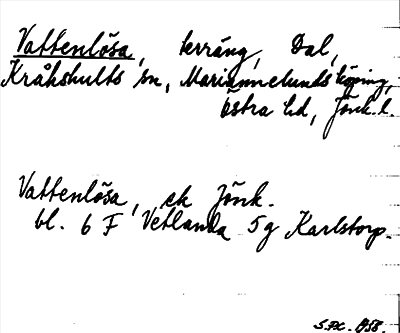 Vattenlösa, terräng, Dal,
Kråkshults sn, Mariannelunds köping,
östra hd, Jönk. l.
Vattenlösa, ek Jönk.
bl. 6 F Vetlanda 5g Karlstorp.